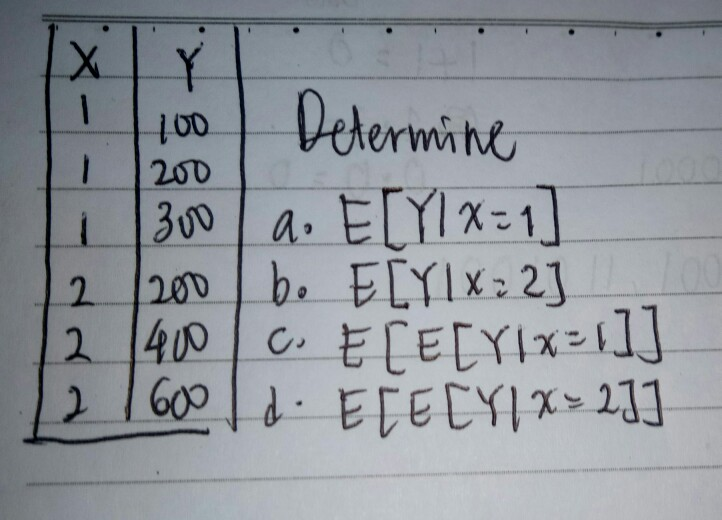 X Y
1 100 Determine
1 200
1 300 a. E[Y|x=1]
2 200 b. E[Y|x=2]
2 400 c. E[E[Y|x=1]]
2 600 d. E[E[Y|x=2]]